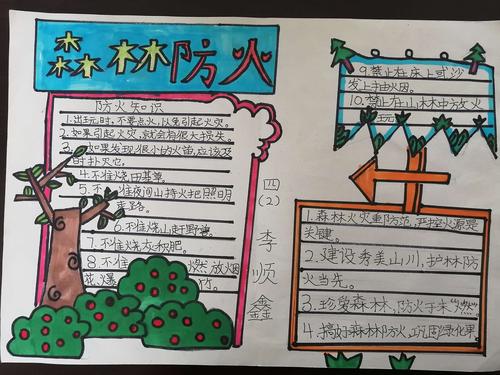 森林防火
防火知识
1.出玩时,不要点火,以免引起火灾。
2.如果引起火灾,就会有很大损失。
3.如果发现很小的火苗,应该及
时扑灭它。
4.不准烧田基草。
5.不准夜间山持火把照明
走路。
6.不准烧山赶野兽。
7.不准烧灰积肥。
8.不准燃放烟
花爆竹。
四(2)李顺鑫
9.禁止在床上或沙
发上抽火因。
10.禁止在山林中方女火
玩
1.森林火灾重防范,严控火源是
关键。
2.建设秀美山川,护林防
火当先。
3.珍爱森林,防火于未“燃”。
4.搞好森林防火,巩固绿化果